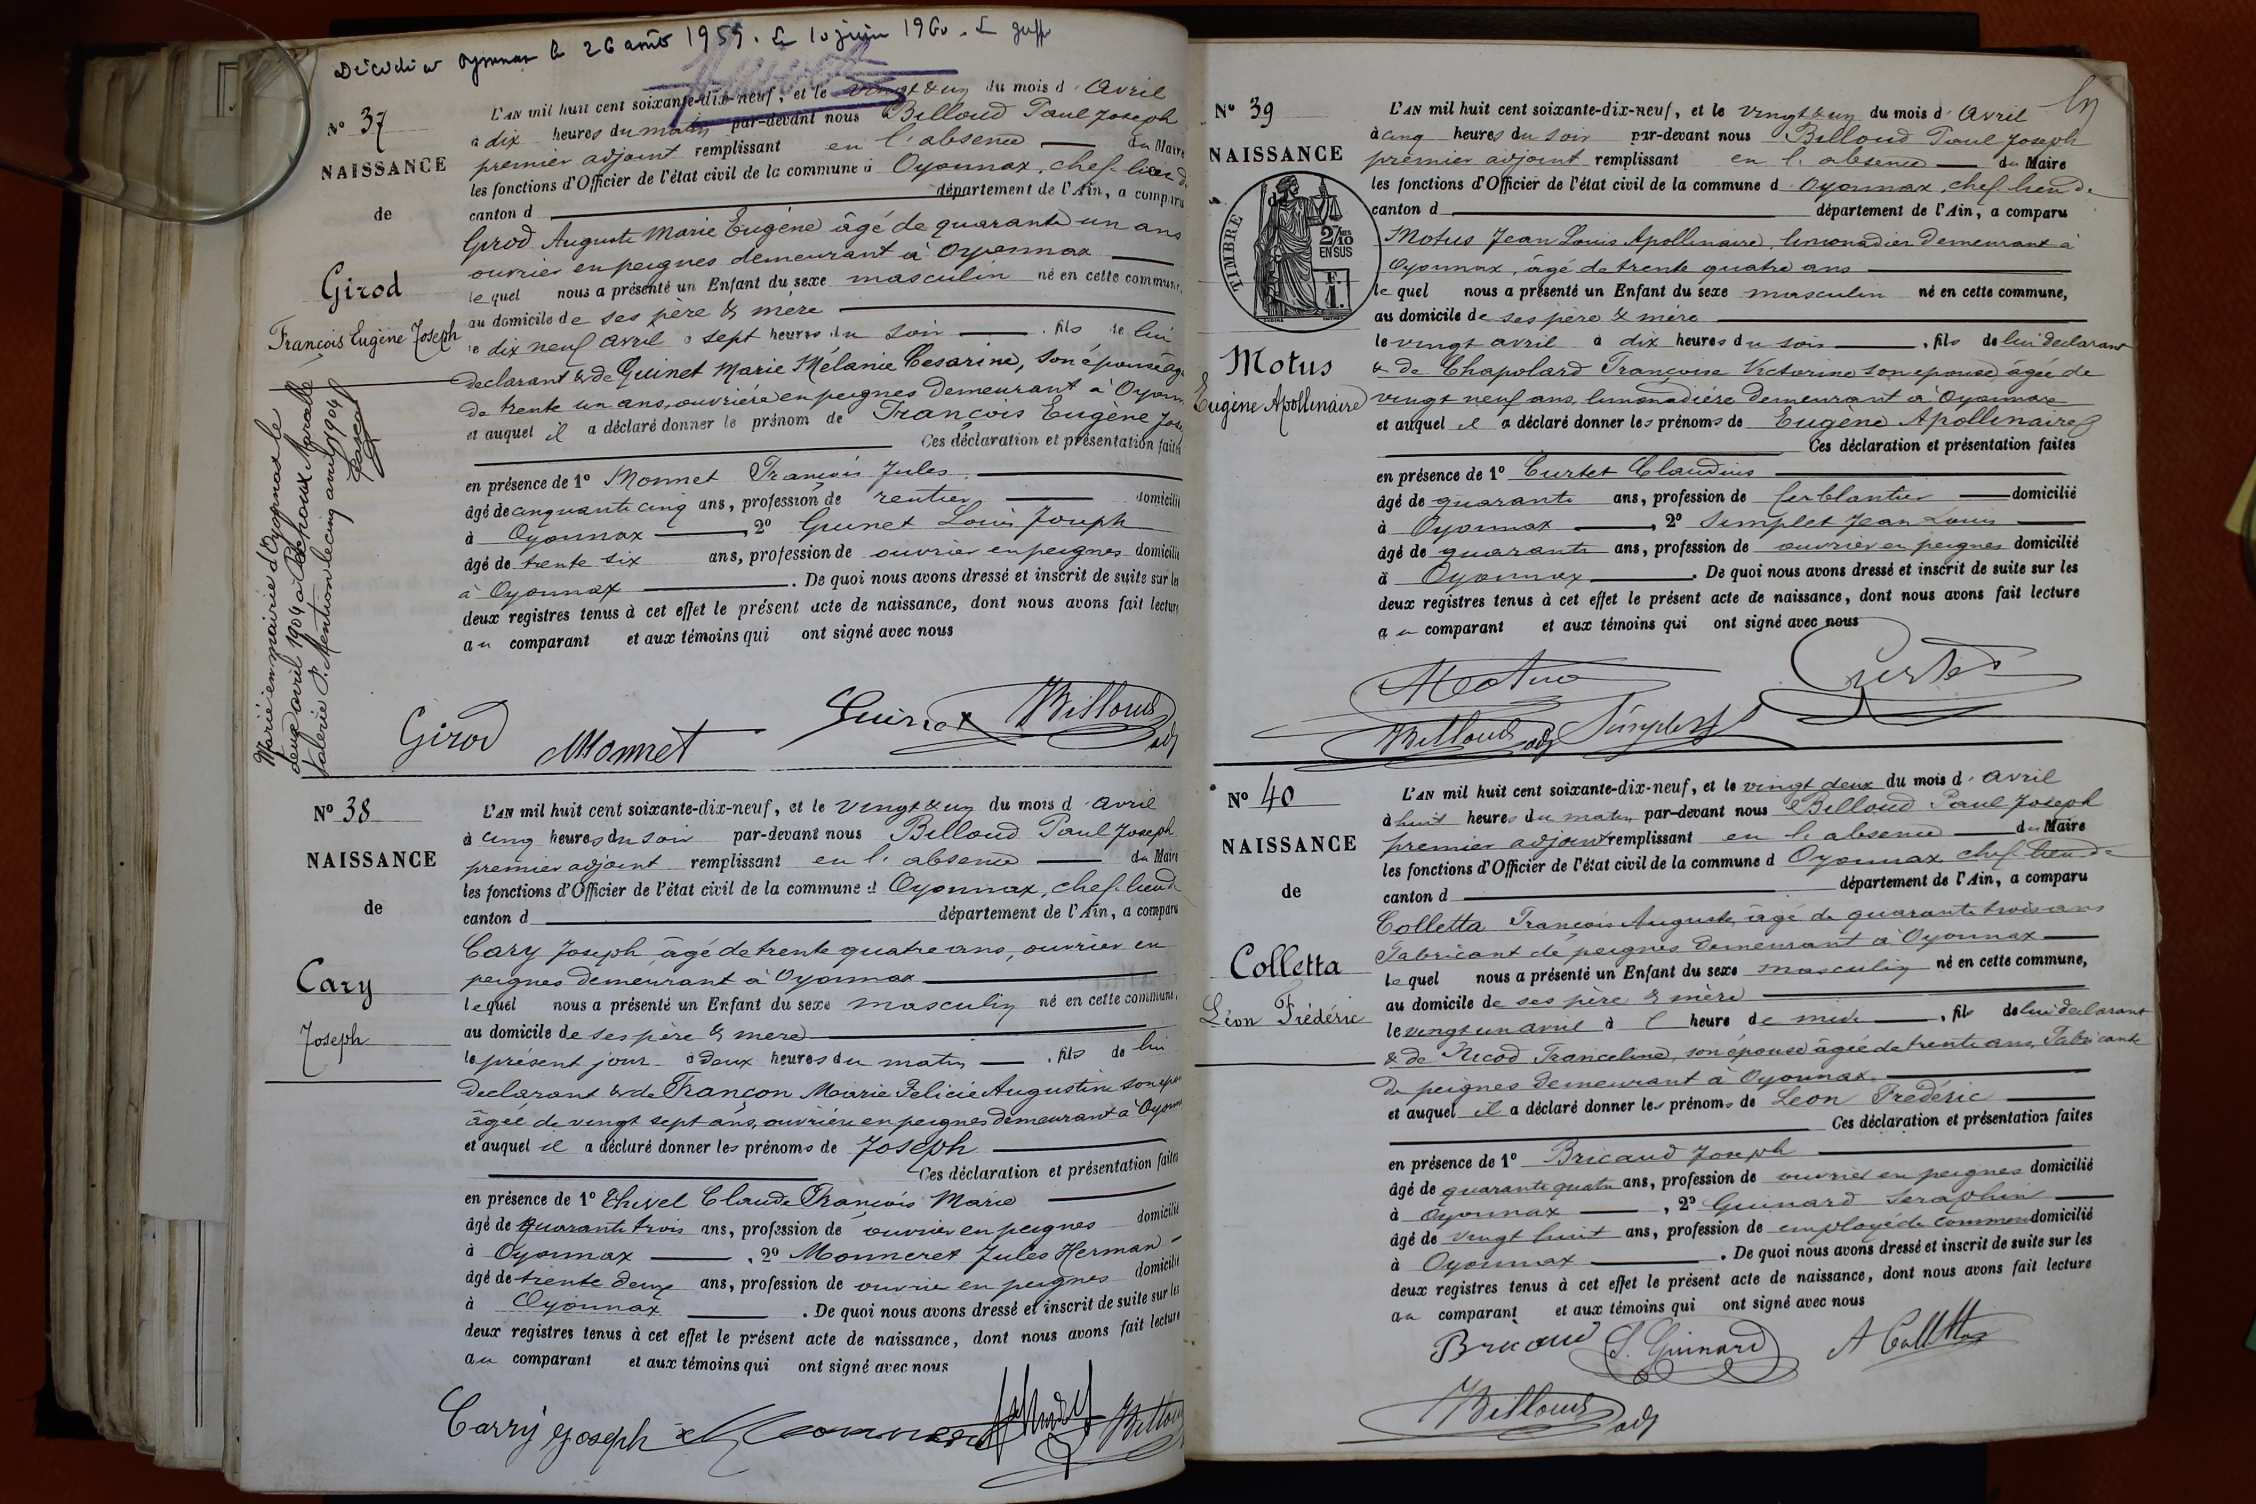 Décédé à Oyonnax le 26 août 1959. Le 10 juin 1960. Le
N° 37
NAISSANCE
de
Girod
François Eugène Joseph
Marié en mairie d'Oyonnax le
deux avril 1904 à Marcelle
Valérie J. Mention le cinq avril 1904
L'AN mil huit cent soixante-dix-neuf, et le vingt & un du mois d'Avril
à dix heures du matin par-devant nous Billoud Paul Joseph
premier adjoint remplissant en l'absence du Maire
les fonctions d'Officier de l'état civil de la commune d Oyonnax, chef-lieu de
canton d département de l'Ain, a comparu
Girod Auguste Marie Eugène âgé de quarante un ans
ouvrier en peignes demeurant à Oyonnax
lequel nous a présenté un Enfant du sexe masculin né en cette commune,
au domicile de ses père & mère
le dix neuf avril à sept heures du soir , fils de lui
déclarant & de Guinet Marie Mélanie Césarine, son épouse âgée
de trente un ans, ouvrière en peignes demeurant à Oyonnax
et auquel il a déclaré donner le prénom de François Eugène Jos
Ces déclaration et présentation faites
en présence de 1° Monnet François Jules
âgé de cinquante cinq ans, profession de rentier domicilié
à Oyonnax , 2° Guinet Louis Joseph
âgé de trente six ans, profession de ouvrier en peignes domicilié
à Oyonnax . De quoi nous avons dressé et inscrit de suite sur les
deux registres tenus à cet effet le présent acte de naissance, dont nous avons fait lecture
au comparant et aux témoins qui ont signé avec nous
Girod Monnet Guinet Billoud adj
N° 38
NAISSANCE
de
Cary
Joseph
L'AN mil huit cent soixante-dix-neuf, et le vingt & un du mois d'Avril
à cinq heures du soir par-devant nous Billoud Paul Joseph
premier adjoint remplissant en l'absence du Maire
les fonctions d'Officier de l'état civil de la commune d Oyonnax, chef-lieu de
canton d département de l'Ain, a comparu
Cary Joseph âgé de trente quatre ans, ouvrier en
peignes demeurant à Oyonnax
lequel nous a présenté un Enfant du sexe masculin né en cette commune,
au domicile de ses père & mère
le présent jour à deux heures du matin , fils de lui
déclarant & de Françon Marie Félicie Augustine son épou
âgée de vingt sept ans, ouvrière en peignes demeurant à Oyonnax
et auquel il a déclaré donner les prénoms de Joseph
Ces déclaration et présentation faites
en présence de 1° Thevel Claude François Marie
âgé de quarante trois ans, profession de ouvrier en peignes domicilié
à Oyonnax , 2° Monneret Jules Herman
âgé de trente deux ans, profession de ouvrier en peignes domicilié
à Oyonnax . De quoi nous avons dressé et inscrit de suite sur les
deux registres tenus à cet effet le présent acte de naissance, dont nous avons fait lecture
au comparant et aux témoins qui ont signé avec nous
Carry Joseph Billoud
N° 39
NAISSANCE
de
TIMBRE
2/10
EN SUS
F.
1.
Motus
Eugène Apollinaire
L'AN mil huit cent soixante-dix-neuf, et le vingt & un du mois d'Avril
à cinq heures du soir par-devant nous Billoud Paul Joseph
premier adjoint remplissant en l'absence du Maire
les fonctions d'Officier de l'état civil de la commune d Oyonnax, chef lieu de
canton d département de l'Ain, a comparu
Motus Jean Louis Apollinaire, limonadier demeurant à
Oyonnax, âgé de trente quatre ans
lequel nous a présenté un Enfant du sexe masculin né en cette commune,
au domicile de ses père & mère
le vingt avril à dix heures du soir , fils de lui déclarant
& de Chapolard Françoise Victorine son épouse, âgée de
vingt neuf ans, limonadière demeurant à Oyonnax
et auquel il a déclaré donner les prénoms de Eugène Apollinaire
Ces déclaration et présentation faites
en présence de 1° Curtet Claudius
âgé de quarante ans, profession de ferblantier domicilié
à Oyonnax , 2° Simplet Jean Louis
âgé de quarante ans, profession de ouvrier en peignes domicilié
à Oyonnax . De quoi nous avons dressé et inscrit de suite sur les
deux registres tenus à cet effet le présent acte de naissance, dont nous avons fait lecture
au comparant et aux témoins qui ont signé avec nous
Motus Curtet
Billoud adj Simplet
N° 40
NAISSANCE
de
Colletta
Léon Frédéric
L'AN mil huit cent soixante-dix-neuf, et le vingt deux du mois d'Avril
à huit heures du matin par-devant nous Billoud Paul Joseph
premier adjoint remplissant en l'absence du Maire
les fonctions d'Officier de l'état civil de la commune d Oyonnax chef lieu de
canton d département de l'Ain, a comparu
Colletta François Auguste, âgé de quarante trois ans
Fabricant de peignes demeurant à Oyonnax
lequel nous a présenté un Enfant du sexe masculin né en cette commune,
au domicile de ses père & mère
le vingt un avril à l heure de midi , fils de lui déclarant
& de Nicod Franceline, son épouse âgée de trente ans, Fabricante
de peignes demeurant à Oyonnax.
et auquel il a déclaré donner les prénoms de Léon Frédéric
Ces déclaration et présentation faites
en présence de 1° Bricaud Joseph
âgé de quarante quatre ans, profession de ouvrier en peignes domicilié
à Oyonnax , 2° Guinard Séraphin
âgé de vingt huit ans, profession de employé de commerce domicilié
à Oyonnax . De quoi nous avons dressé et inscrit de suite sur les
deux registres tenus à cet effet le présent acte de naissance, dont nous avons fait lecture
au comparant et aux témoins qui ont signé avec nous
Bricaud S. Guinard A Colletta
Billoud adj